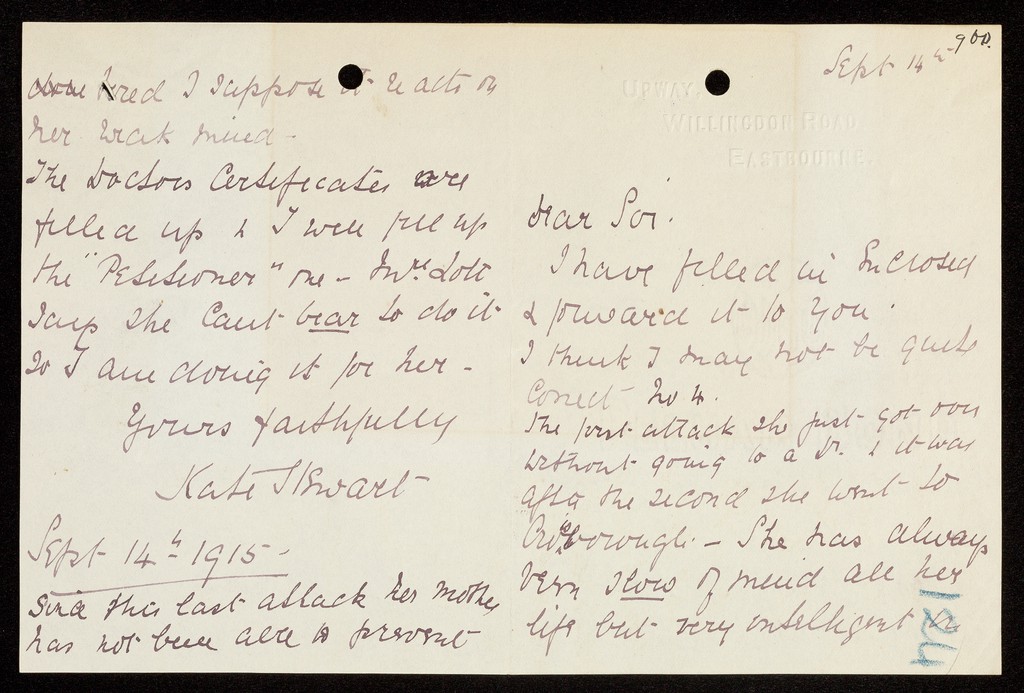 900.
Sept 14th
UPWAY,
WILLINGDON ROAD
EASTBOURNE.
Dear Sir.
I have filled in Enclosed
& forward it to you.
I think I may not be quite
Correct No 4.
The first attack she just got over
without going to a Dr. & it was
after the second she went to
Crowborough. - She has always
been slow of mind all her
life but very intelligent
1721
tired I suppose it re acts on
her weak mind -
The Doctors Certificates are
filled up & I will fill up
the "Petitioner" one - Mrs Lott
says she Cant bear to do it
so I am doing it for her -
Yours faithfully
Kate Stewart
Sept 14th 1915 -
Since this last attack her mother
has not been able to prevent